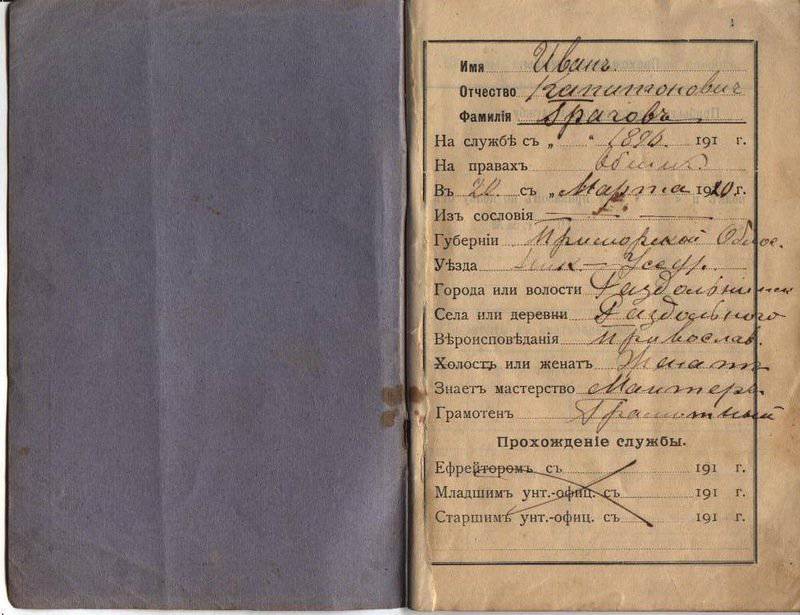 1
Имя Иванъ
Отчество Капитоновичъ
Фамилія Грачовъ
На службѣ съ „ “ 1890. 191 г.
На правахъ
Въ 20 съ „ Марта 1920, г.
Изъ сословія
Губерніи Приморской Облас.
Уѣзда
Города или волости Раздольнинск
Села или деревни Раздольного
Вѣроисповѣданія Православ.
Холостъ или женатъ Женатъ
Знаетъ мастерство
Грамотенъ Грамотный
Прохожденіе службы.
Ефрейторомъ съ 191 г.
Младшимъ унт.-офиц. съ 191 г.
Старшимъ унт.-офиц. съ 191 г.